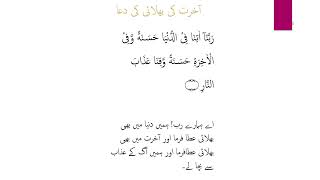 آخرت کی بھلائی کی دعا
رَبَّنَآ اٰتِنَا فِی الدُّنْیَا حَسَنَةً وَّفِی
الْاٰخِرَةِ حَسَنَةً وَّقِنَا عَذَابَ
النَّارِ
اے ہمارے رب! ہمیں دنیا میں بھی
بھلائی عطا فرما اور آخرت میں بھی
بھلائی عطافرما اور ہمیں آگ کے عذاب
سے بچا لے۔